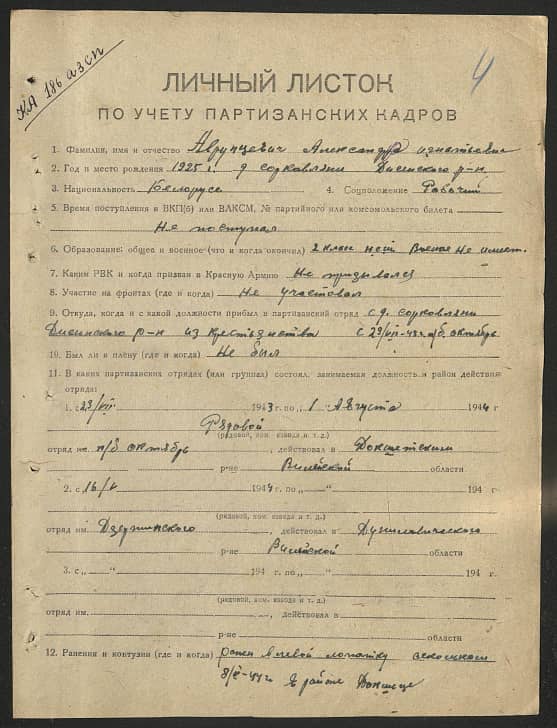 КА 186 азсп
4
ЛИЧНЫЙ ЛИСТОК
ПО УЧЕТУ ПАРТИЗАНСКИХ КАДРОВ
1. Фамилия, имя и отчество Аврунцевич Александр игнатьевич
2. Год и место рождения 1925 г. д сорковляни Дисенского р-н.
3. Национальность Белорусс 4. Соцположение Рабочий
5. Время поступления в ВКП(б) или ВЛКСМ, № партийного или комсомольского билета
Не поступал
6. Образование: общее и военное (что и когда окончил) 2 клас Военое Не имеет.
7. Каким РВК и когда призван в Красную Армию Не призывался
8. Участие на фронтах (где и когда) Не участвовал
9. Откуда, когда и с какой должности прибыл в партизанский отряд с д. сорковляни
Дисинского р-н из крестьянства с 23/VII-43 г. п/б. октябрь
10. Был ли в плену (где и когда) Не был
11. В каких партизанских отрядах (или группах) состоял, занимаемая должность и район действия
отряда:
1. с 23/VII 1943 г. по „1 Августа 1944 г
Рядовой
(рядовой, ком. взвода и т. д.)
отряд им. п/б октябрь , действовал в Докшетским
р-не Вилейской области
2. с 16/V 1944 г. по „—“ 194 г
(рядовой, ком. взвода и т. д.)
отряд им. Дзержинского , действовал в
р-не Вилейской области
3. с „ —“ 194 г. по „—“ 194 г.
(рядовой, ком. взвода и т. д.)
отряд им. , действовал в
р-не области
12. Ранения и контузии (где и когда) ранен в левой лопатку осколком
8/V-44 г в районе Докшеце